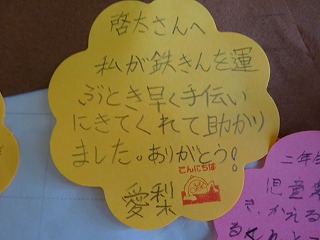 啓太さんへ
私が鉄きんを運
ぶとき早く手伝い
にきてくれて助かり
ました。ありがとう!
こんにちは
愛梨
二年
児童
き、かえる